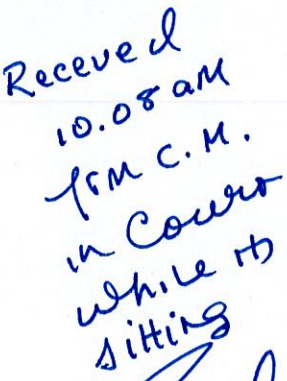 Received
10.08 am
from C.M.
in Court
while
sitting